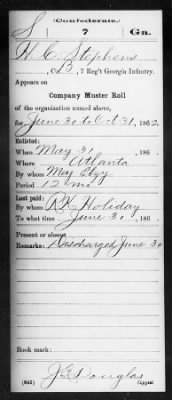 S
(Confederate.)
7
Ga.
H. C. Stephens
Co. B, 7 Reg't Georgia Infantry.
Appears on
Company Muster Roll
of the organization named above,
for June 30 to Oct 31, 1862
Enlisted:
When May 31, 186
Where Atlanta
By whom Maj
Period 12 mo
Last paid:
By whom Holiday
To what time June 30, 186
Present or absent
Remarks: Discharged June 30
Book mark:
J E Douglas
(642)
Copyist.